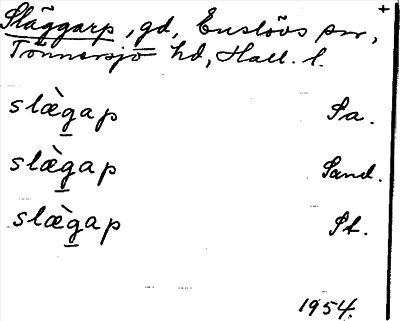 +
Släggarp, gd, Enslövs sn,
Tönnersjö hd, Hall. l.
slæ̀gap Sa.
slæ̀gap Sand.
slæ̀gap St.
1954.